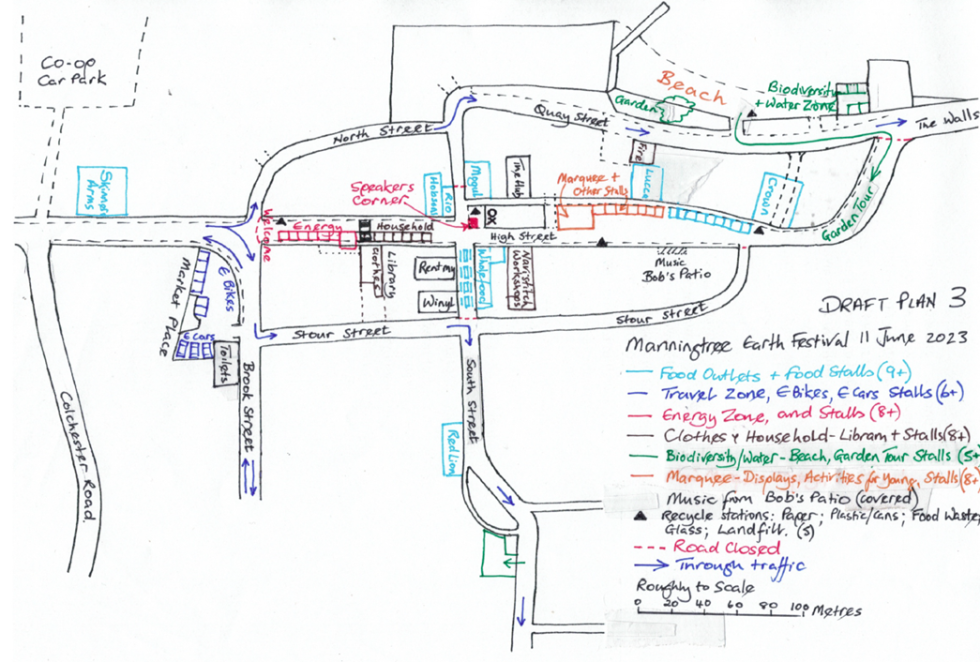 Co-op
Car Park
Skinners
Arms
North Street
Quay Street
Garden
Beach
Biodiversity
+ Water Zone
The Walls
Garden Tour
Fire
Lucca
Crown
Marquee +
Other Stalls
The Hub
Mogul
Rio
Hobsons
Speakers
Corner
OX
Welcome
Energy
Household
High Street
Clothes
Library
Rentmy
Winyl
Wholefood
Workshops
Music
Bob's Patio
Market Place
E Bikes
E Cars
Toilets
Stour Street
Stour Street
Brook Street
South Street
Red Lion
Colchester Road
DRAFT PLAN 3
Manningtree Earth Festival 11 June 2023
Food Outlets + Food Stalls (9+)
Travel Zone, E Bikes, E Cars Stalls (6+)
Energy Zone, and Stalls (8+)
Clothes + Household - Library + Stalls (8+)
Biodiversity/Water - Beach, Garden Tour Stalls (5+
Marquee - Displays, Activities for Young, Stalls (8+
Music from Bob's Patio (covered)
Recycle stations: Paper; Plastic/cans; Food Waste
Glass; Landfill. (5)
Road Closed
Through traffic
Roughly to Scale
0 20 40 60 80 100 Metres